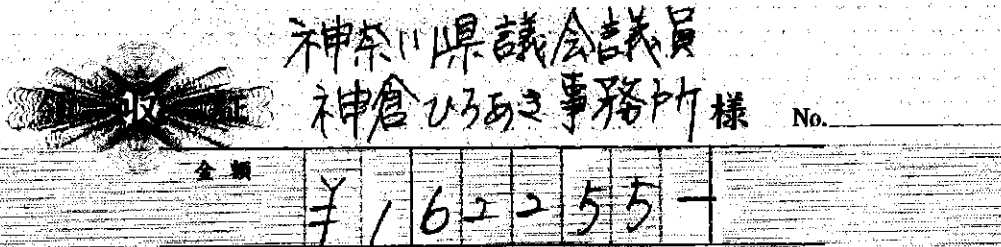 神奈川県議会議員
領収証 神倉ひろあき事務所様 No.
金額 ¥162255-